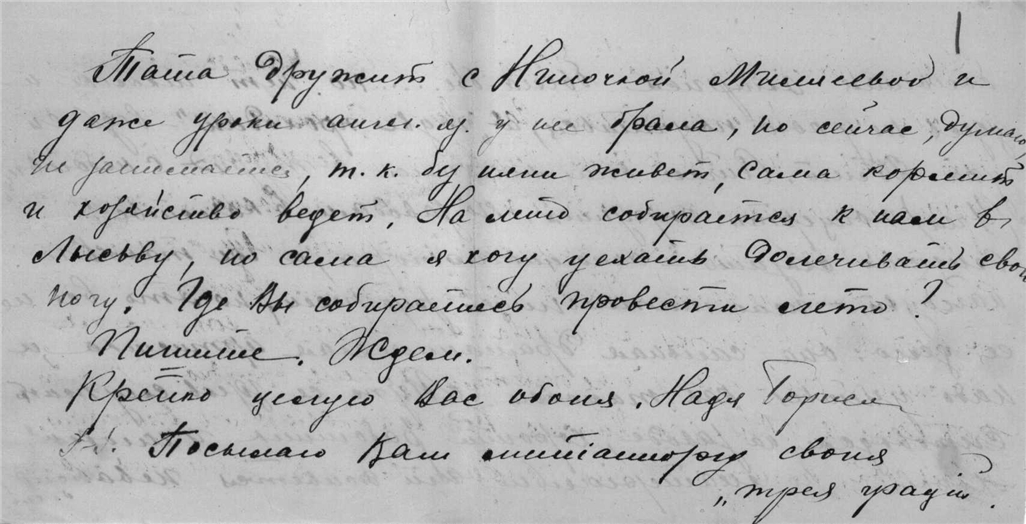 1
Тата дружит с Ниночкой и
даже уроки англ. яз. у нее брала, но сейчас, думаю
не занимается, т. к. без няни живет, сама кормит
и хозяйство ведет. На лето собирается к нам в
Лысьву, но сама я хочу уехать долечивать свою
ногу. Где Вы собираетесь провести лето?
Пишите. Ждем.
Крепко целую Вас обоих. Надя
Посылаю Вам своих
„трех граций